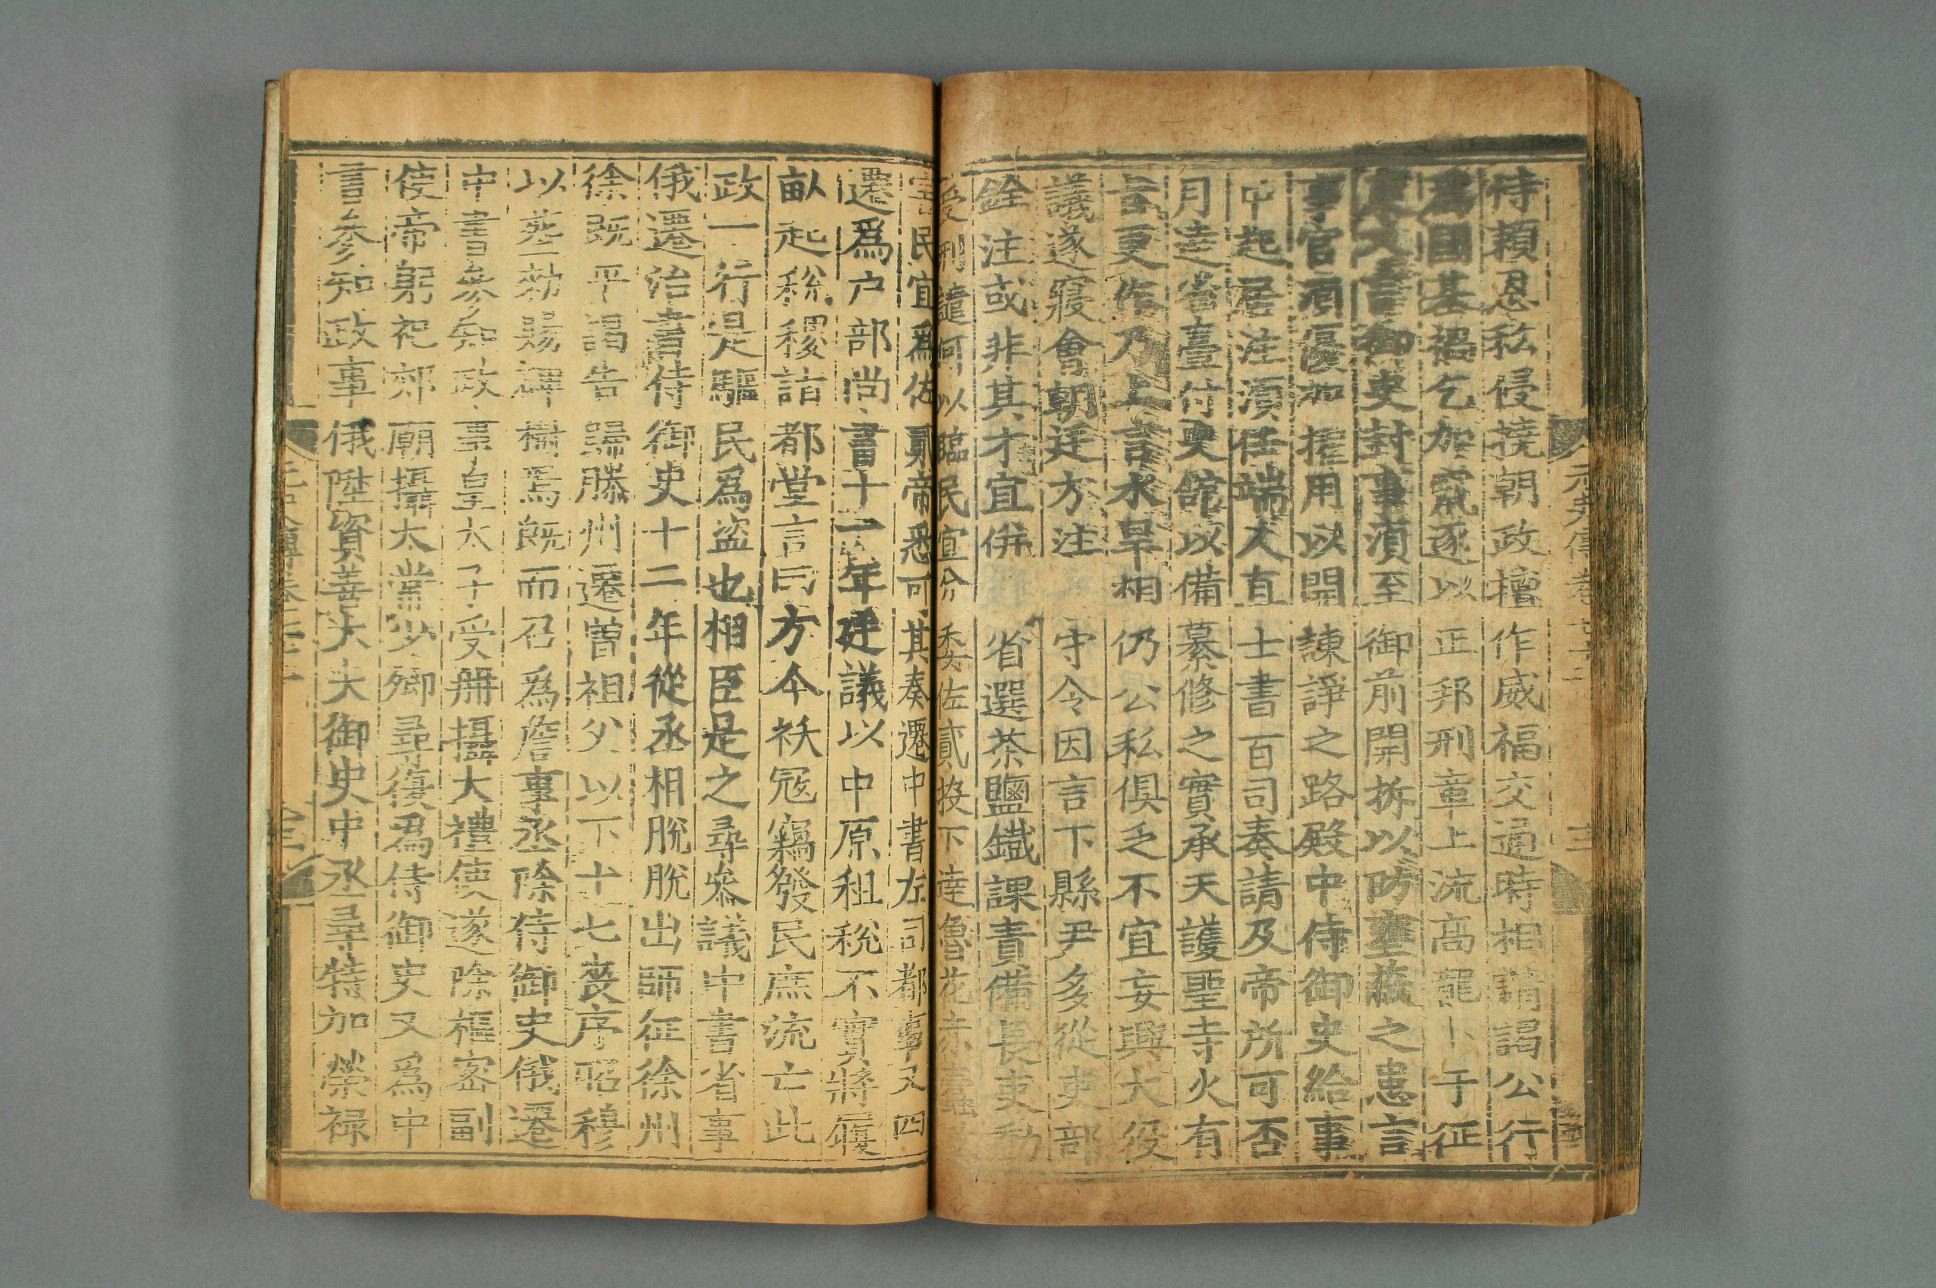 恃頼恩私侵撓朝政擅作威福交通時相請謁公行
爲國基禍乞加竄逐以正邦刑章上流高龍卜于征
文言御史封事須至御前開拆以防壅蔽之患言
事官須優加擢用以開諫諍之路殿中侍御史給事
中起居注須任端人直士書百司奏請及帝所可否
月達省臺付史館以備纂修之實承天護聖寺火有
言更作乃上言水旱相仍公私俱乏不宜妄興大役
議遂寢會朝廷方注守令因言下縣尹多從吏部
銓注或非其才宜併省選茶鹽鐵課責備長吏動
受刑譴何以臨民宜分委佐貳投下達魯花赤蠹
害民宜爲佐貳帝悉可其奏遷中書左司都事又四
遷爲户部尚書十一年廷議以中原租稅不實將履
畝起稅稷詣都堂言曰方今祅冦竊發民庶流亡此
政一行是驅民爲盗也相臣是之尋參議中書省事
俄遷治書侍御史十二年從丞相脫脫出師征徐州
徐既平謁告歸滕州遷曽祖父以下十七喪序昭穆
以葬勑賜碑樹焉既而召爲詹事丞除侍御史俄遷
中書參知政事皇太子受冊攝大禮使遂除樞密副
使帝躬祀郊廟攝太常少卿尋復爲侍御史又爲中
書參知政事俄陞資善大夫御史中丞尋特加榮禄